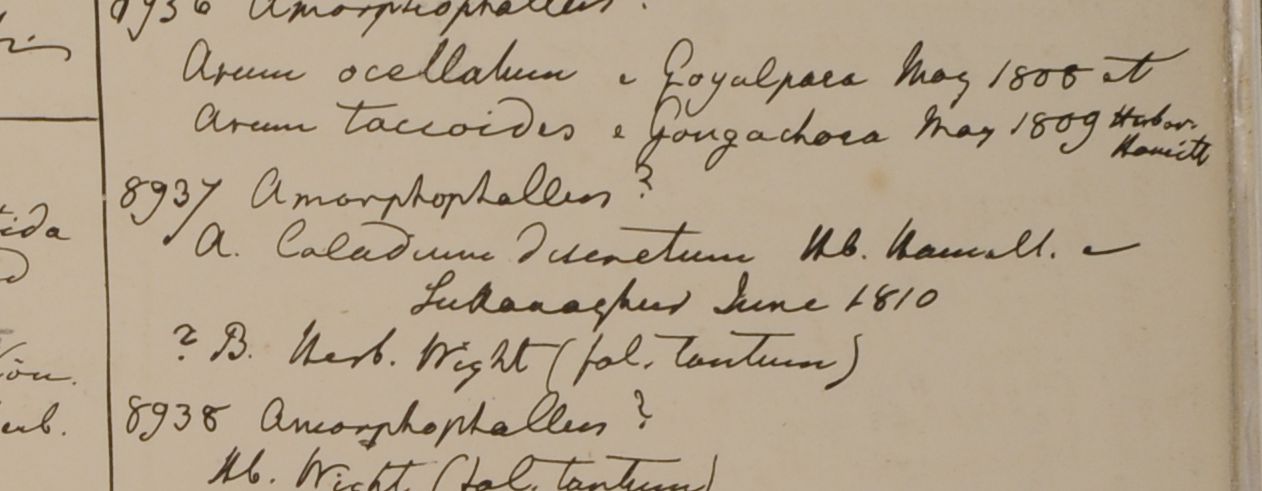 8936 Amorphophallus ?
Arum ocellatum e Goyalpara May 1808 et
Arum taccoides e Gongachora May 1809 Herb.
Hamilt
8937 Amorphophallus ?
A. Caladium discretum Hb. Hamilt. e
Sukanaghur June 1810
? B. Herb. Wight (fol. tantum)
8938 Amorphophallus ?
Hb. Wight (fol. tantum)